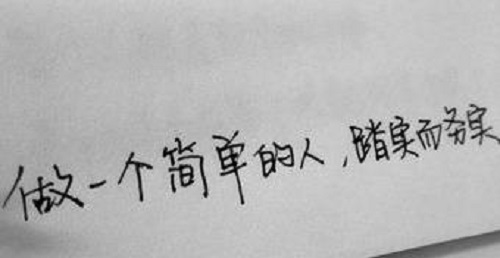 做一个简单的人，踏实而务实